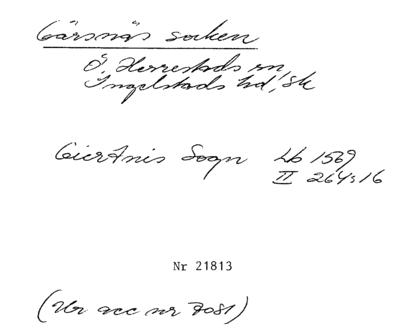 Gärsnäs socken
Ö. Herrestads sn,
Ingelstads hd, Sk
Giertnis Sogn Lb 1569
II 264:16
Nr 21813
(Ur acc nr 7081)